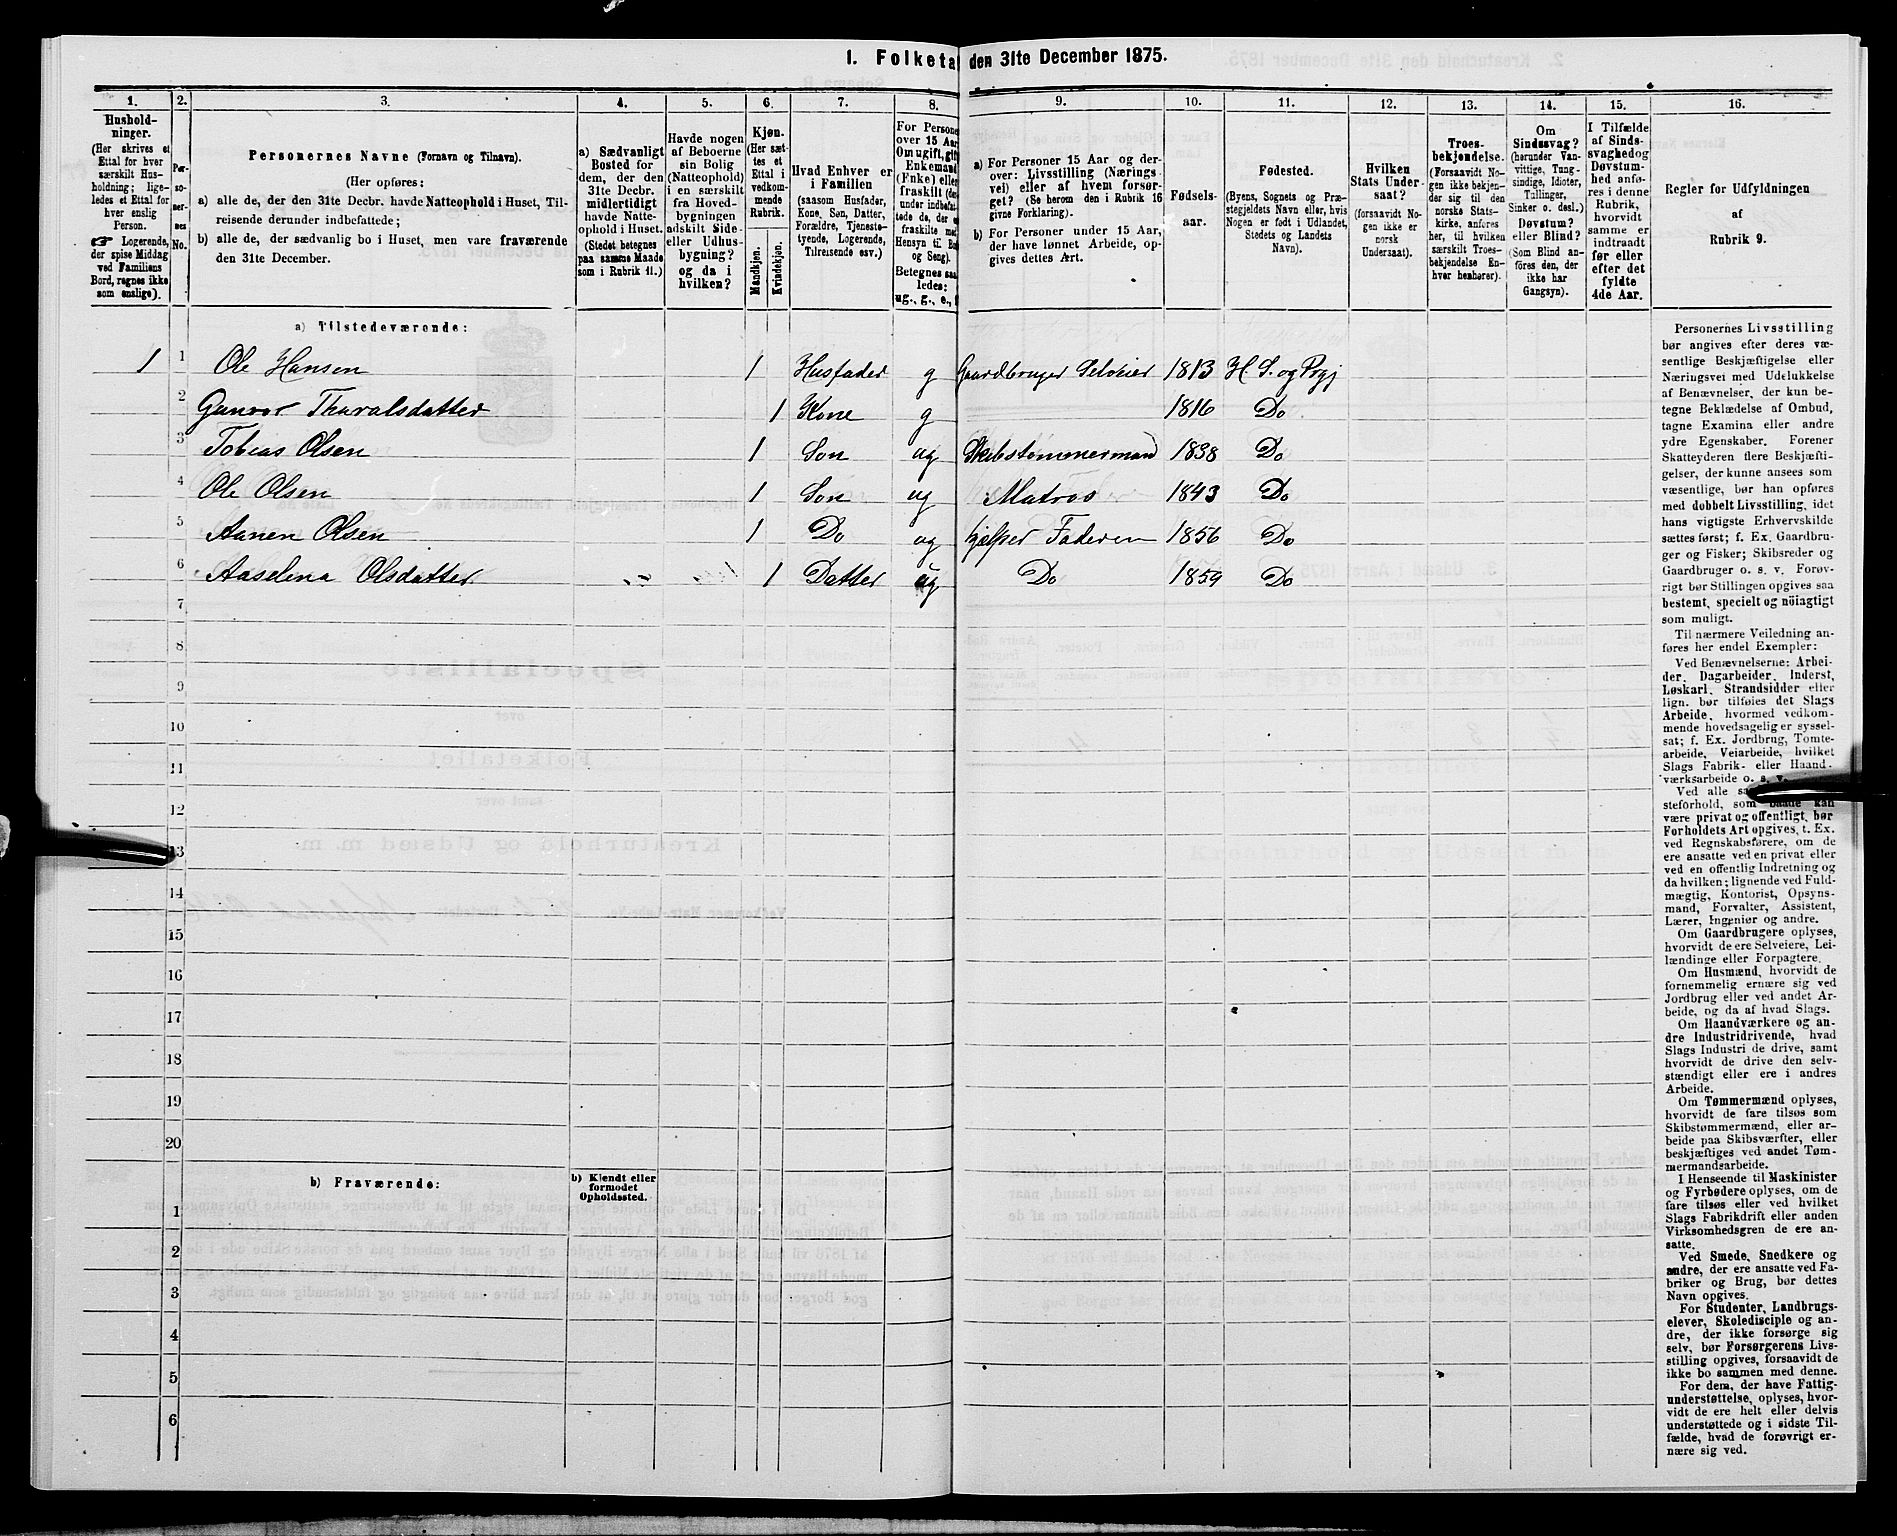 1. Folketa den 31te December 1875.
1. 2. 3. 4. 5. 6. 7. 8. 9. 10. 11. 12. 13. 14. 15. 16.
Hushold-
ninger.
(Her skrives et
Ettal for hver
særskilt Hus-
holdning; lige-
ledes et Ettal for
hver enslig
Person.
☞ Logerende,
der spise Middag
ved Familiens
Bord, regnes ikke
som enslige).
Per-
so-
ner-
nes
No.
Personernes Navne (Fornavn og Tilnavn).
(Her opføres:
a) alle de, der den 31te Decbr. havde Natteophold i Huset, Til-
reisende derunder indbefattede;
b) alle de, der sædvanlig bo i Huset, men vare fraværende
den 31te December.
a) Sædvanligt
Bosted for
dem, der den
31te Decbr.
midlertidigt
havde Natte-
ophold i Huset.
(Stedet betegnes
paa samme Maade
som i Rubrik 11.)
Havde nogen
af Beboerne
sin Bolig
(Natteophold)
i en særskilt
fra Hoved-
bygningen
adskilt Side-
eller Udhus-
bygning?
og da i
hvilken?
Kjøn.
(Her sæt-
tes et
Ettal i
vedkom-
mende
Rubrik.
Mandkjøn.
Kvindekjøn.
Hvad Enhver er
i Familien
(saasom Husfader,
Kone, Søn, Datter,
Forældre, Tjeneste-
tyende, Logerende,
Tilreisende osv.)
For Persone
over 15 Aar
Om ugift, gif
Enkemand
(Enke) elle
fraskilt (de
under indbefat
tede de, der e
fraskilte med
Hensyn til Bo
og Seng).
Betegnes saa
ledes:
ug., g., e., f
a) For Personer 15 Aar og der-
over: Livsstilling (Nærings-
vei) eller af hvem forsør-
get? (Se herom den i Rubrik 16
givne Forklaring).
b) For Personer under 15 Aar,
der have lønnet Arbeide, op-
gives dettes Art.
Fødsels-
aar.
Fødested.
(Byens, Sognets og Præ-
stegjeldets Navn eller, hvis
Nogen er født i Udlandet,
Stedets og Landets
Navn).
Hvilken
Stats Under-
saat?
(forsaavidt No-
gen ikke er
norsk
Undersaat).
Troes-
bekjendelse.
(Forsaavidt No-
gen ikke bekjen-
der sig til den
norske Stats-
kirke, anføres
her, til hvilken
særskilt Troes-
bekjendelse En-
hver henhører).
Om
Sindssvag?
(herunder Van-
vittige, Tung-
sindige, Idioter,
Tullinger,
Sinker o. desl.)
Døvstum?
eller Blind?
(Som Blind an-
føres den, der
ikke har
Gangsyn).
I Tilfælde
af Sinds-
svaghed og
Døvstum-
hed anfø-
res i denne
Rubrik,
hvorvidt
samme er
indtraadt
før eller
efter det
fyldte
4de Aar.
Regler for Udfyldningen
af
Rubrik 9.
a) Tilstedeværende:
1 1 Ole Hansen 1 Husfader g Gaardbruger Selveier 1813 H. S. og Prgj
2 Gunvor Tharalsdatter 1 Kone g 1816 Do
3 Tobias Olsen 1 Søn ug Skibstømmermand 1838 Do
4 Ole Olsen 1 Søn ug Matros 1843 Do
5 Aanen Olsen 1 Do ug hjelper Faderen 1856 Do
6 Aaselena Olsdatter 1 Datter ug Do 1859 Do
7
8
9
10
11
12
13
14
15
16
17
18
19
20
b) Fraværende:
b) Kjendt eller
formodet
Opholdssted.
1
2
3
4
5
6
Personernes Livsstilling
bør angives efter deres væ-
sentlige Beskjæftigelse eller
Næringsvei med Udelukkelse
af Benævnelser, der kun be-
tegne Beklædelse af Ombud,
tagne Examina eller andre
ydre Egenskaber. Forener
Skatteyderen flere Beskjæfti-
gelser, der kunne ansees som
væsentlige, bør han opføres
med dobbelt Livsstilling, idet
hans vigtigste Erhvervskilde
sættes først; f. Ex. Gaardbru-
ger og Fisker; Skibsreder og
Gaardbruger o. s. v. Forøv-
rigt bør Stillingen opgives saa
bestemt, specielt og nöiagtigt
som muligt.
Til nærmere Veiledning an-
føres her endel Exempler:
Ved Benævnelserne: Arbei-
der, Dagarbeider, Inderst,
Løskarl, Strandsidder eller
lign. bør tilføies det Slags
Arbeide, hvormed vedkom-
mende hovedsagelig er syssel-
sat; f. Ex. Jordbrug, Tomte-
arbeide, Veiarbeide, hvilket
Slags Fabrik- eller Haand-
værksarbeide o. s. v.
Ved alle
steforhold, som baade kan
være privat og offentligt, bør
Forholdets Art opgives, t. Ex.
ved Regnskabsførere, om de
ere ansatte ved en privat eller
ved en offentlig Indretning og
da hvilken; lignende ved Fuld-
mægtig, Kontorist, Opsyns-
mand, Forvalter, Assistent,
Lærer, Ingeniør og andre.
Om Gaardbrugere oplyses,
hvorvidt de ere Selveiere, Lei-
lændinge eller Forpagtere.
Om Husmænd, hvorvidt de
fornemmelig ernære sig ved
Jordbrug eller ved andet Ar-
beide, og da af hvad Slags.
Om Haandværkere og an-
dre Industridrivende, hvad
Slags Industri de drive, samt
hvorvidt de drive den selv-
stændigt eller ere i andres
Arbeide.
Om Tømmermænd oplyses,
hvorvidt de fare tilsøs som
Skibstømmermænd, eller ar-
beide paa Skibsværfter, eller
beskjæftiges ved andet Tøm-
mermandsarbeide.
I Henseende til Maskinister
og Fyrbødere oplyses, om de
fare tilsøs eller ved hvilket
Slags Fabrikdrift eller anden
Virksomhedsgren de ere an-
satte.
Ved Smede, Snedkere og
andre, der ere ansatte ved Fa-
briker og Brug, bør dettes
Navn opgives.
For Studenter, Landbrugs-
elever, Skoledisciple og an-
dre, der ikke forsørge sig
selv, bør Forsørgerens Livs-
stilling opgives, forsaavidt de
ikke bo sammen med denne.
For dem, der have Fattig-
understøttelse, oplyses, hvor-
vidt de ere helt eller delvis
understøttede og i sidste Til-
fælde, hvad de forøvrigt er-
nære sig ved.